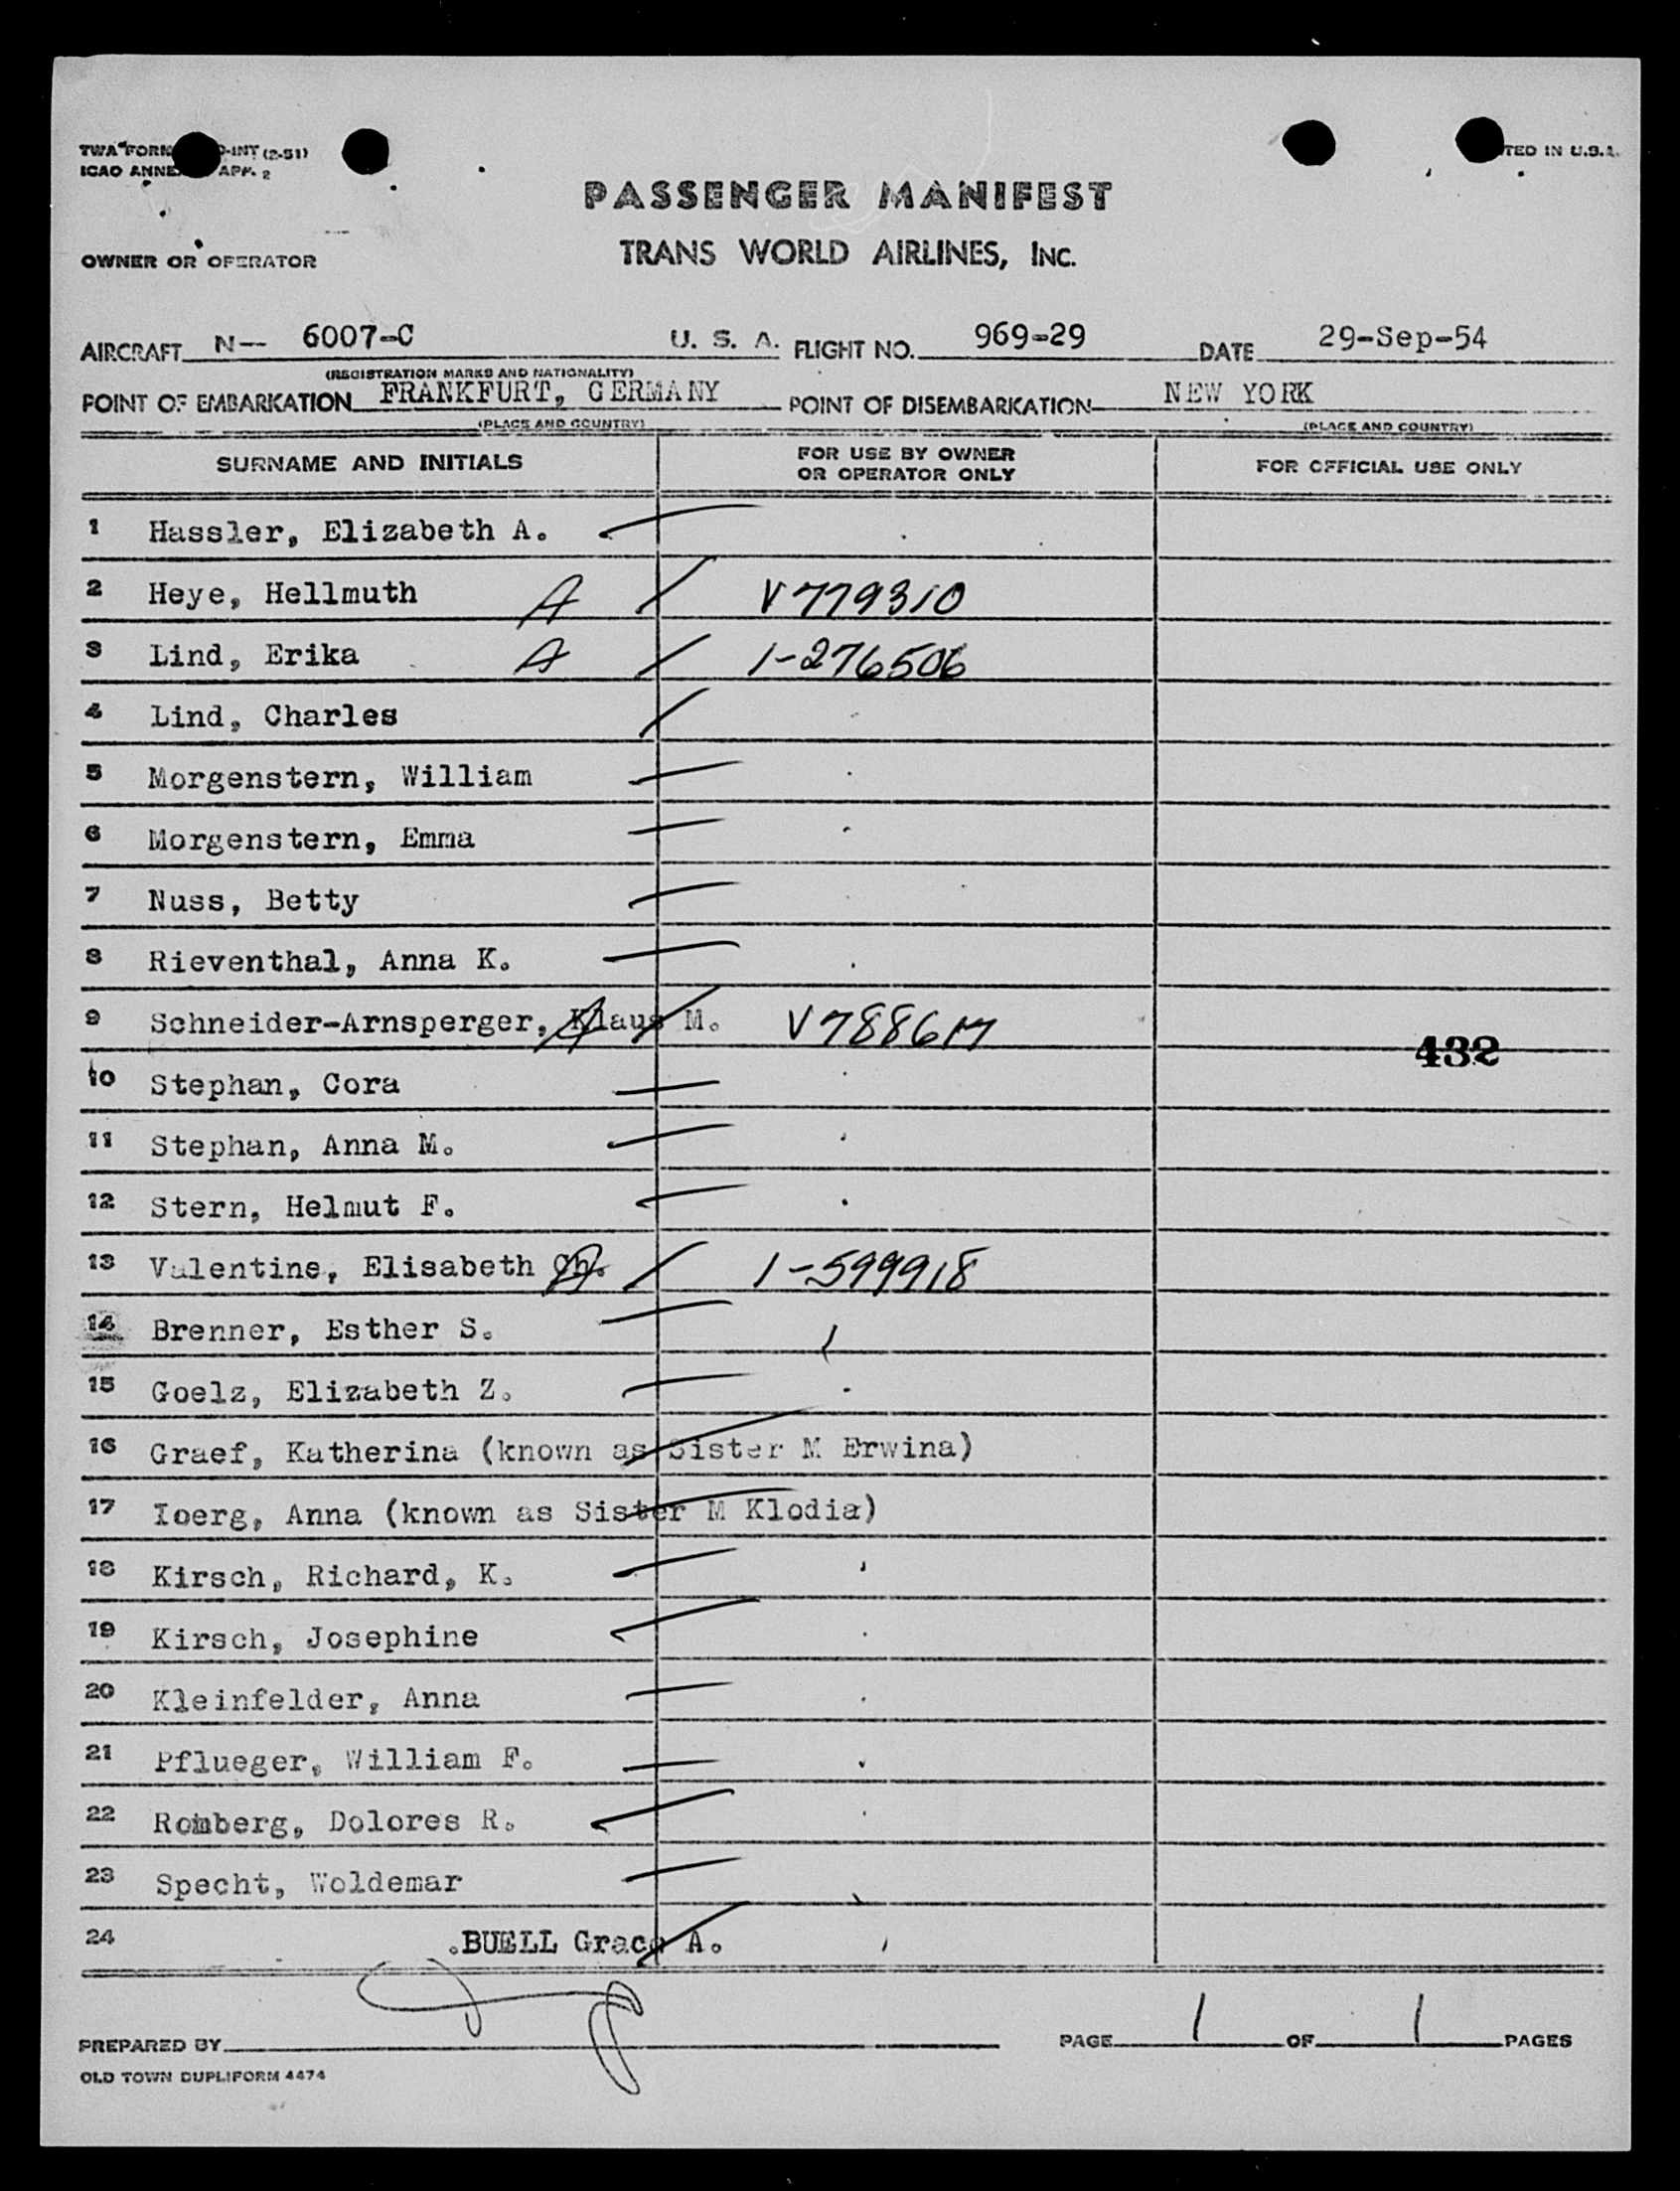 TWA FORM -INT (2-51)
ICAO ANNE APP. 2
TED IN U.S.A.
PASSENGER MANIFEST
OWNER OR OPERATOR
TRANS WORLD AIRLINES, INC.
AIRCRAFT N— 6007-C U. S. A. FLIGHT NO. 969-29 DATE 29-Sep-54
(REGISTRATION MARKS AND NATIONALITY)
POINT OF EMBARKATION FRANKFURT, GERMANY POINT OF DISEMBARKATION NEW YORK
(PLACE AND COUNTRY) (PLACE AND COUNTRY)
SURNAME AND INITIALS FOR USE BY OWNER OR OPERATOR ONLY FOR OFFICIAL USE ONLY
1 Hassler, Elizabeth A.
2 Heye, Hellmuth A V779310
3 Lind, Erika A 1-276506
4 Lind, Charles
5 Morgenstern, William
6 Morgenstern, Emma
7 Nuss, Betty
8 Rieventhal, Anna K.
9 Schneider-Arnsperger, Klaus M. A
432
10 Stephan, Cora
11 Stephan, Anna M.
12 Stern, Helmut F.
13 Valentine, Elisabeth Ch. A 1-599918
14 Brenner, Esther S.
15 Goelz, Elizabeth Z.
16 Graef, Katherina (known as Sister M Erwina)
17 Ioerg, Anna (known as Sister M Klodia)
18 Kirsch, Richard, K.
19 Kirsch, Josephine
20 Kleinfelder, Anna
21 Pflueger, William F.
22 Romberg, Dolores R.
23 Specht, Woldemar
24 .BUELL Grace A.
PREPARED BY PAGE 1 OF 1 PAGES
OLD TOWN DUPLIFORM 4474